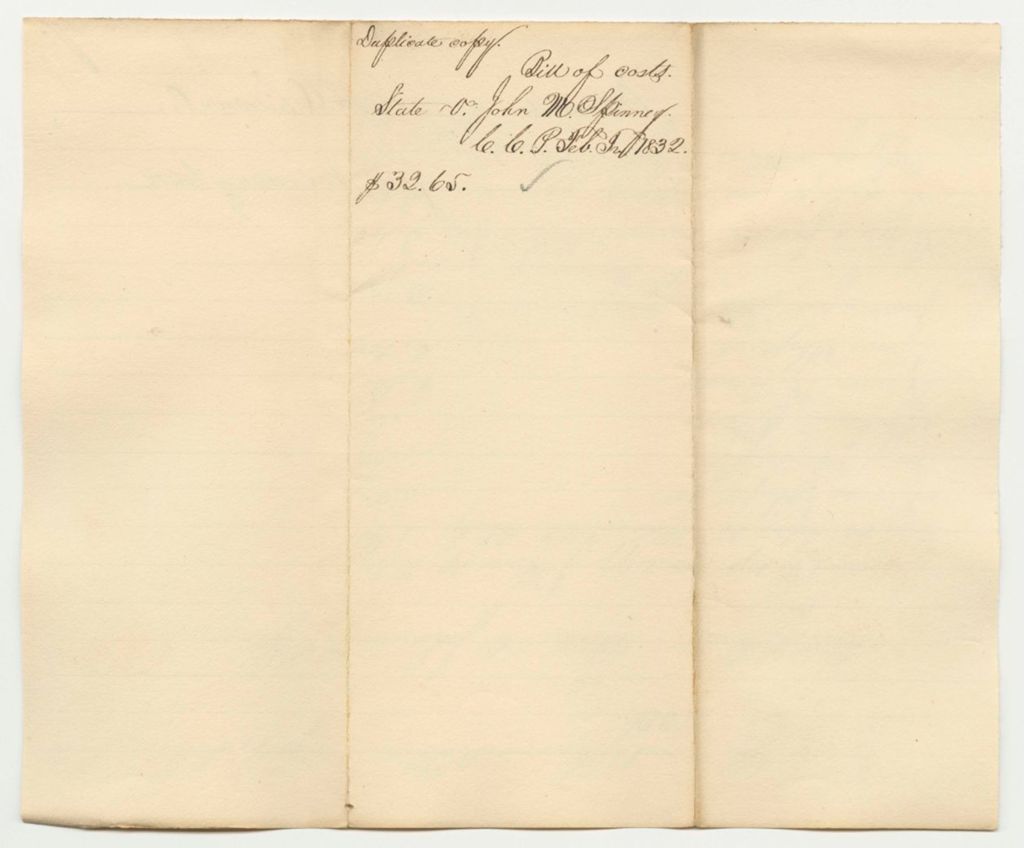 Duplicate copy.
Bill of costs.
State vs. John M. Spinney.
C. C. P. Feb. Tm 1832.
$32.65.